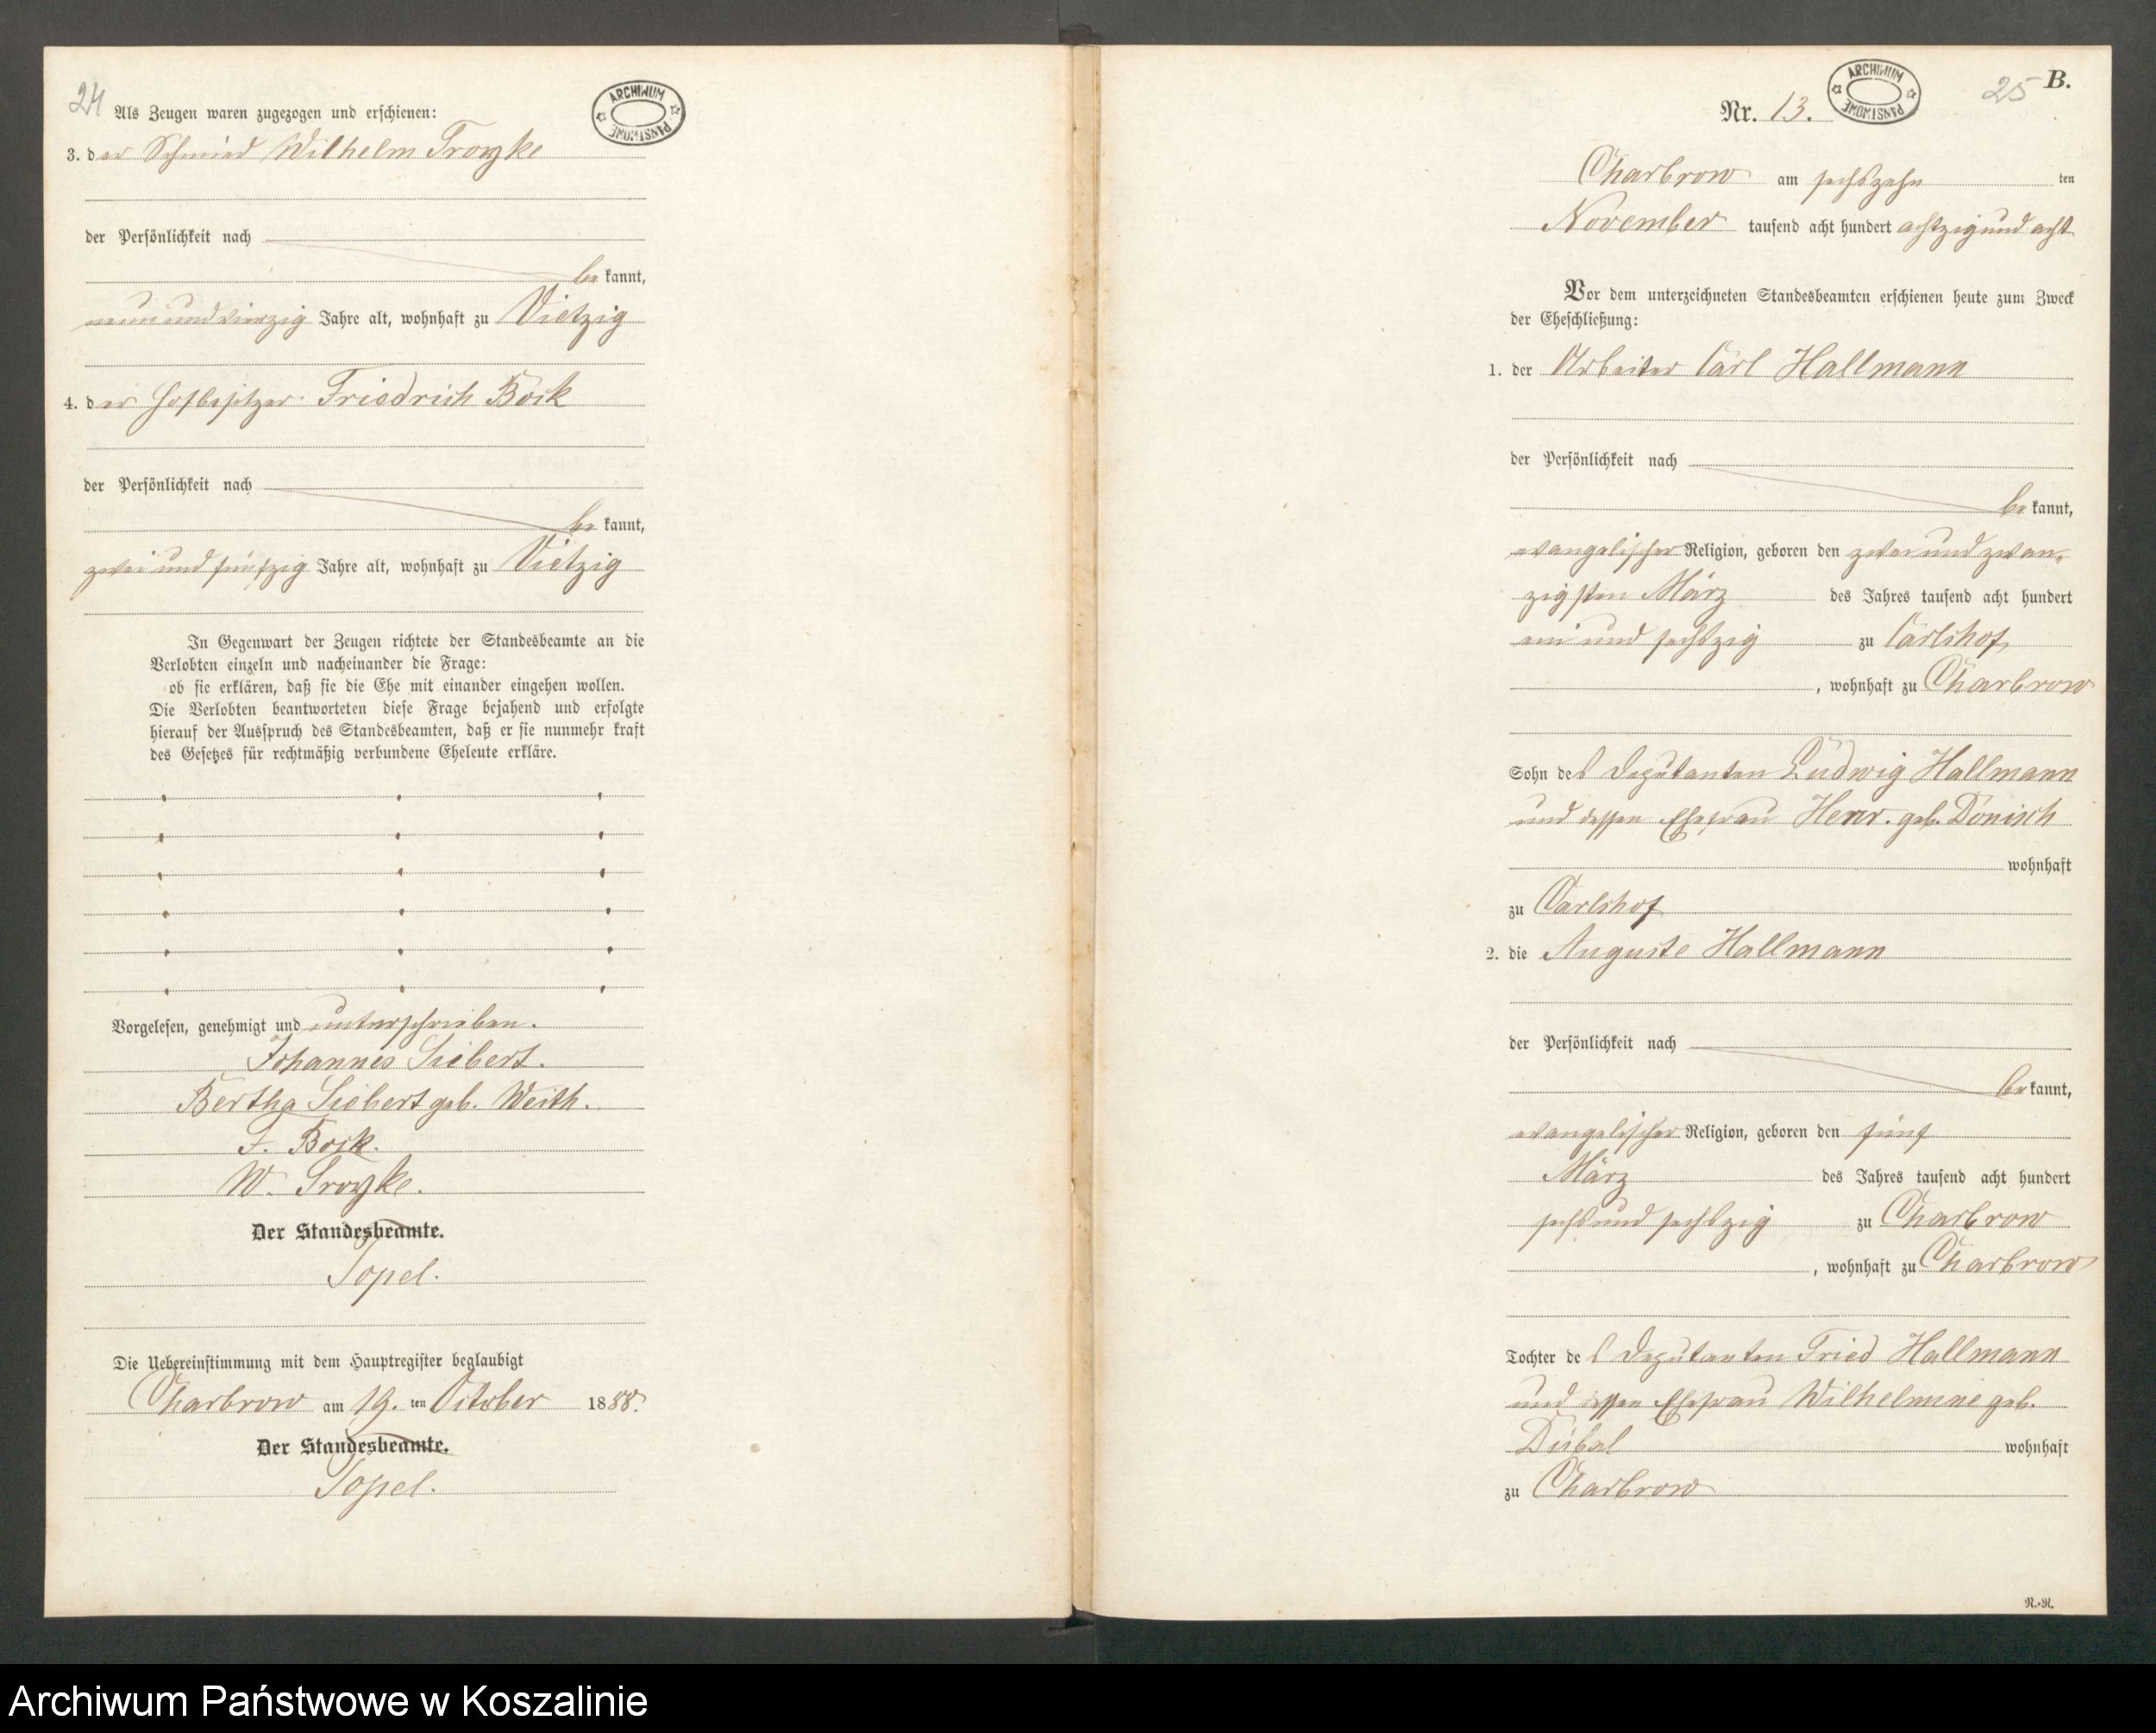 24
ARCHIWUM PAŃSTWOWE
Als Zeugen waren zugezogen und erschienen:
3. der Schmied Wilhelm Troyke
der Persönlichkeit nach
be kannt,
neun und vierzig Jahre alt, wohnhaft zu Vietzig
4. der Hofbesitzer Friedrich Bock
der Persönlichkeit nach
be kannt,
zwei und fünfzig Jahre alt, wohnhaft zu Vietzig
In Gegenwart der Zeugen richtete der Standesbeamte an die
Verlobten einzeln und nacheinander die Frage:
ob sie erklären, daß sie die Ehe mit einander eingehen wollen.
Die Verlobten beantworteten diese Frage bejahend und erfolgte
hierauf der Ausspruch des Standesbeamten, daß er sie nunmehr kraft
des Gesetzes für rechtmäßig verbundene Eheleute erkläre.
Vorgelesen, genehmigt und unterschrieben.
Johannes Siebert.
Bertha Siebert geb. Weith.
F. Bock.
W. Troyke.
Der Standesbeamte.
Topel.
Die Uebereinstimmung mit dem Hauptregister beglaubigt
Charbrow am 19. ten October 1888.
Der Standesbeamte.
Topel.
25 B.
ARCHIWUM PAŃSTWOWE
Nr. 13.
Charbrow am sechszehn ten
November tausend acht hundert achtzig und acht
Vor dem unterzeichneten Standesbeamten erschienen heute zum Zweck
der Eheschließung:
1. der Arbeiter Carl Hallmann
der Persönlichkeit nach
be kannt,
evangelischer Religion, geboren den zwei und zwan-
zigsten März des Jahres tausend acht hundert
ein und sechszig zu Carlshof
, wohnhaft zu Charbrow
Sohn des Deputanten Ludwig Hallmann
und dessen Ehefrau Henr. geb. Dönisch
wohnhaft
zu Carlshof
2. die Auguste Hallmann
der Persönlichkeit nach
be kannt,
evangelischer Religion, geboren den fünf
März des Jahres tausend acht hundert
sechs und sechszig zu Charbrow
, wohnhaft zu Charbrow
Tochter des Deputanten Fried Hallmann
und dessen Ehefrau Wilhelmine geb.
Dubal wohnhaft
zu Charbrow
R.-R.
Archiwum Państwowe w Koszalinie